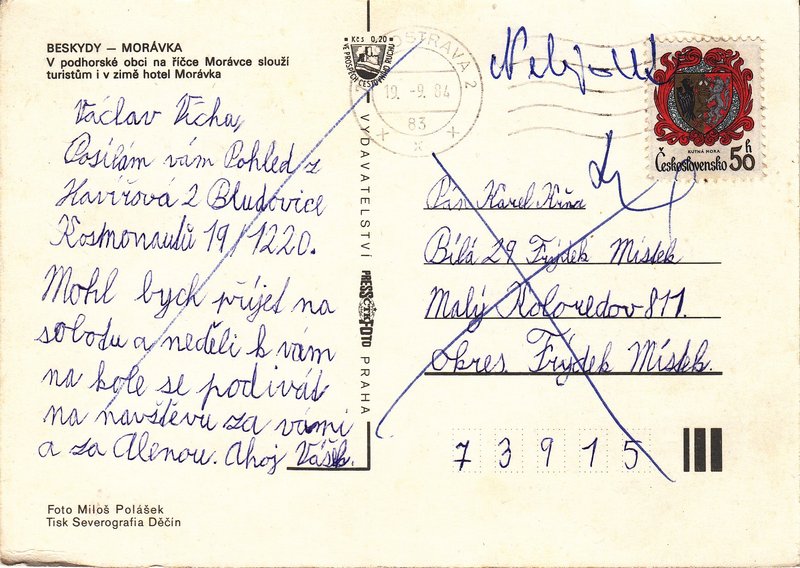 BESKYDY — MORÁVKA
V podhorské obci na říčce Morávce slouží
turistům i v zimě hotel Morávka
Václav Vícha,
Posílám vám Pohled z
Havířová 2 Bludovice
Kosmonautů 19/1220.
Mohl bych příjet na
sobotu a neděli k vám
na kole se podivát
na navštěvu za vámi
a za Alenou. Ahoj Vášek.
Foto Miloš Polášek
Tisk Severografia Děčín
Kčs 0,20
VE PROSPĚCH ČESTNÝ ŘAD RUCHU
VYDAVATELSTVÍ PRESSFOTO PRAHA
ČTK
OSTRAVA 2
19.-9.84
83
KUTNÁ HORA
Československo 50 h
Pán Karel
Bílá 29 Frýdek Místek
Malý Koloredov 811.
okres. Frýdek Místek.
73915